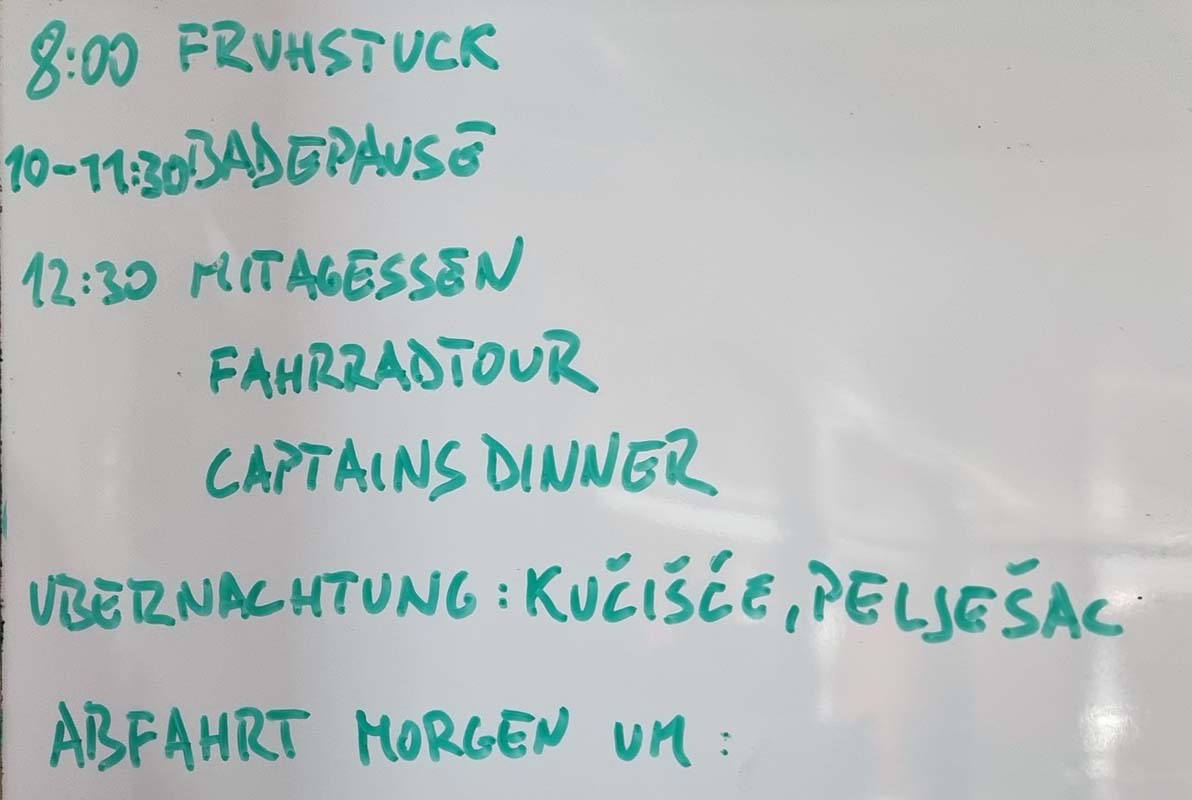 8:00 FRUHSTUCK
10-11:30 BADEPAUSE
12:30 MITAGESSEN
FAHRRADTOUR
CAPTAINS DINNER
UBERNACHTUNG: KUČIŠČE, PELJEŠAC
ABFAHRT MORGEN UM: